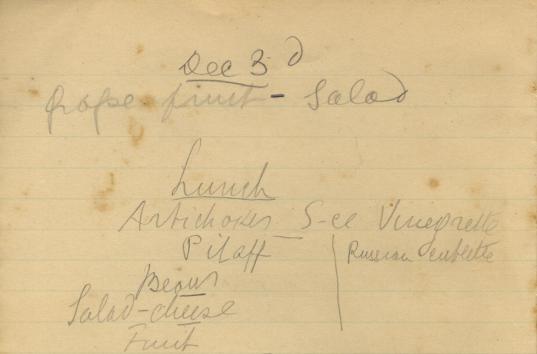 Dec 3d
Grape fruit - Salad
Lunch
Artichokes S-ce Vinegrette
Pilaff
Russian
Beans
Salad-cheese
Fruit